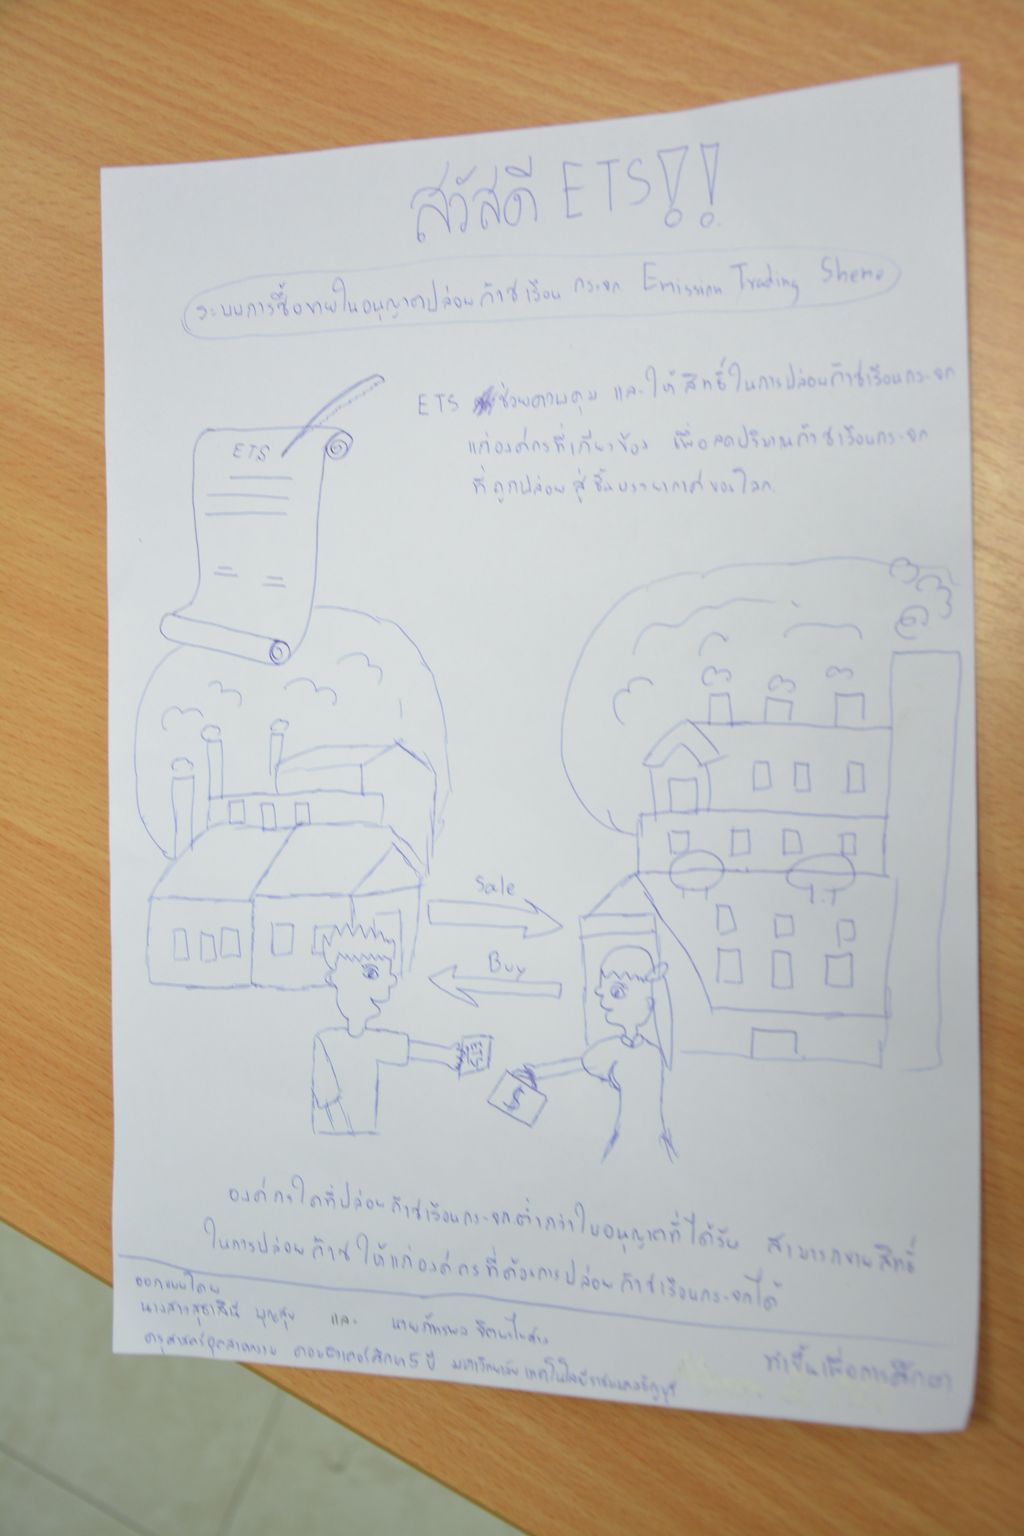 สวัสดี ETS!!
ระบบการซื้อขายใบอนุญาตปล่อยก๊าซเรือนกระจก Emission Trading Sheme
ETS ช่วยควบคุม และให้สิทธิ์ในการปล่อยก๊าซเรือนกระจก
แก่องค์กรที่เกี่ยวข้อง เพื่อลดปริมาณก๊าซเรือนกระจก
ที่ถูกปล่อยสู่ชั้นบรรยากาศของโลก.
ETS
Sale
Buy
$
องค์กรใดที่ปล่อยก๊าซเรือนกระจกต่ำกว่าใบอนุญาตที่ได้รับ สามารถขายสิทธิ์
ในการปล่อยก๊าซให้แก่องค์กรที่ต้องการปล่อยก๊าซเรือนกระจกได้
ออกแบบโดย
นางสาวสุธาสินี บุญสุข และ นาย
ครุศาสตร์อุตสาหกรรม คอมพิวเตอร์ศึกษา 5 ปี มหาวิทยาลัยเทคโนโลยีราชมงคลธัญบุรี
ทำขึ้นเพื่อการศึกษา